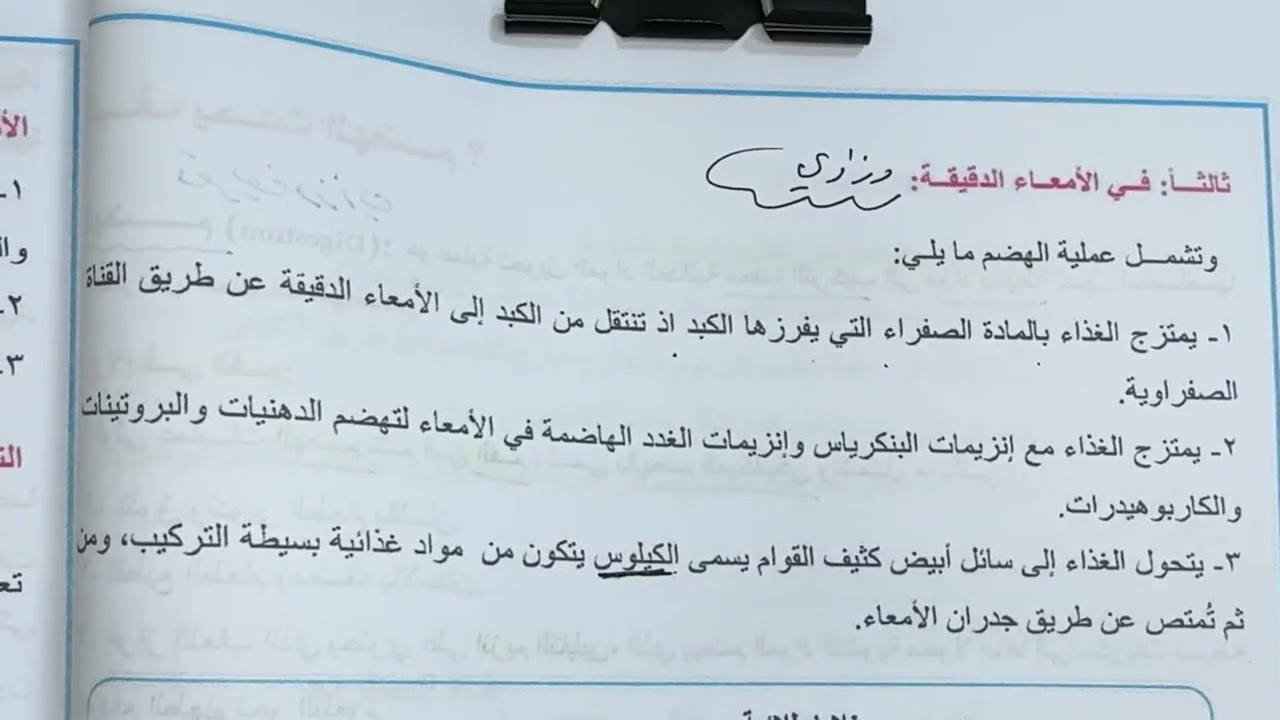 ثالثـاً: فـي الأمعـاء الدقيقـة: وزاري
وتشمـل عملية الهضم ما يلي:
١- يمتزج الغذاء بالمادة الصفراء التي يفرزها الكبد اذ تنتقل من الكبد إلى الأمعاء الدقيقة عن طريق القناة
الصفراوية.
٢- يمتزج الغذاء مع إنزيمات البنكرياس وإنزيمات الغدد الهاضمة في الأمعاء لتهضم الدهنيات والبروتينات
والكاربوهيدرات.
٣- يتحول الغذاء إلى سائل أبيض كثيف القوام يسمى الكيلوس يتكون من مواد غذائية بسيطة التركيب، ومن
ثم تُمتص عن طريق جدران الأمعاء.
١-
٢-
٣-